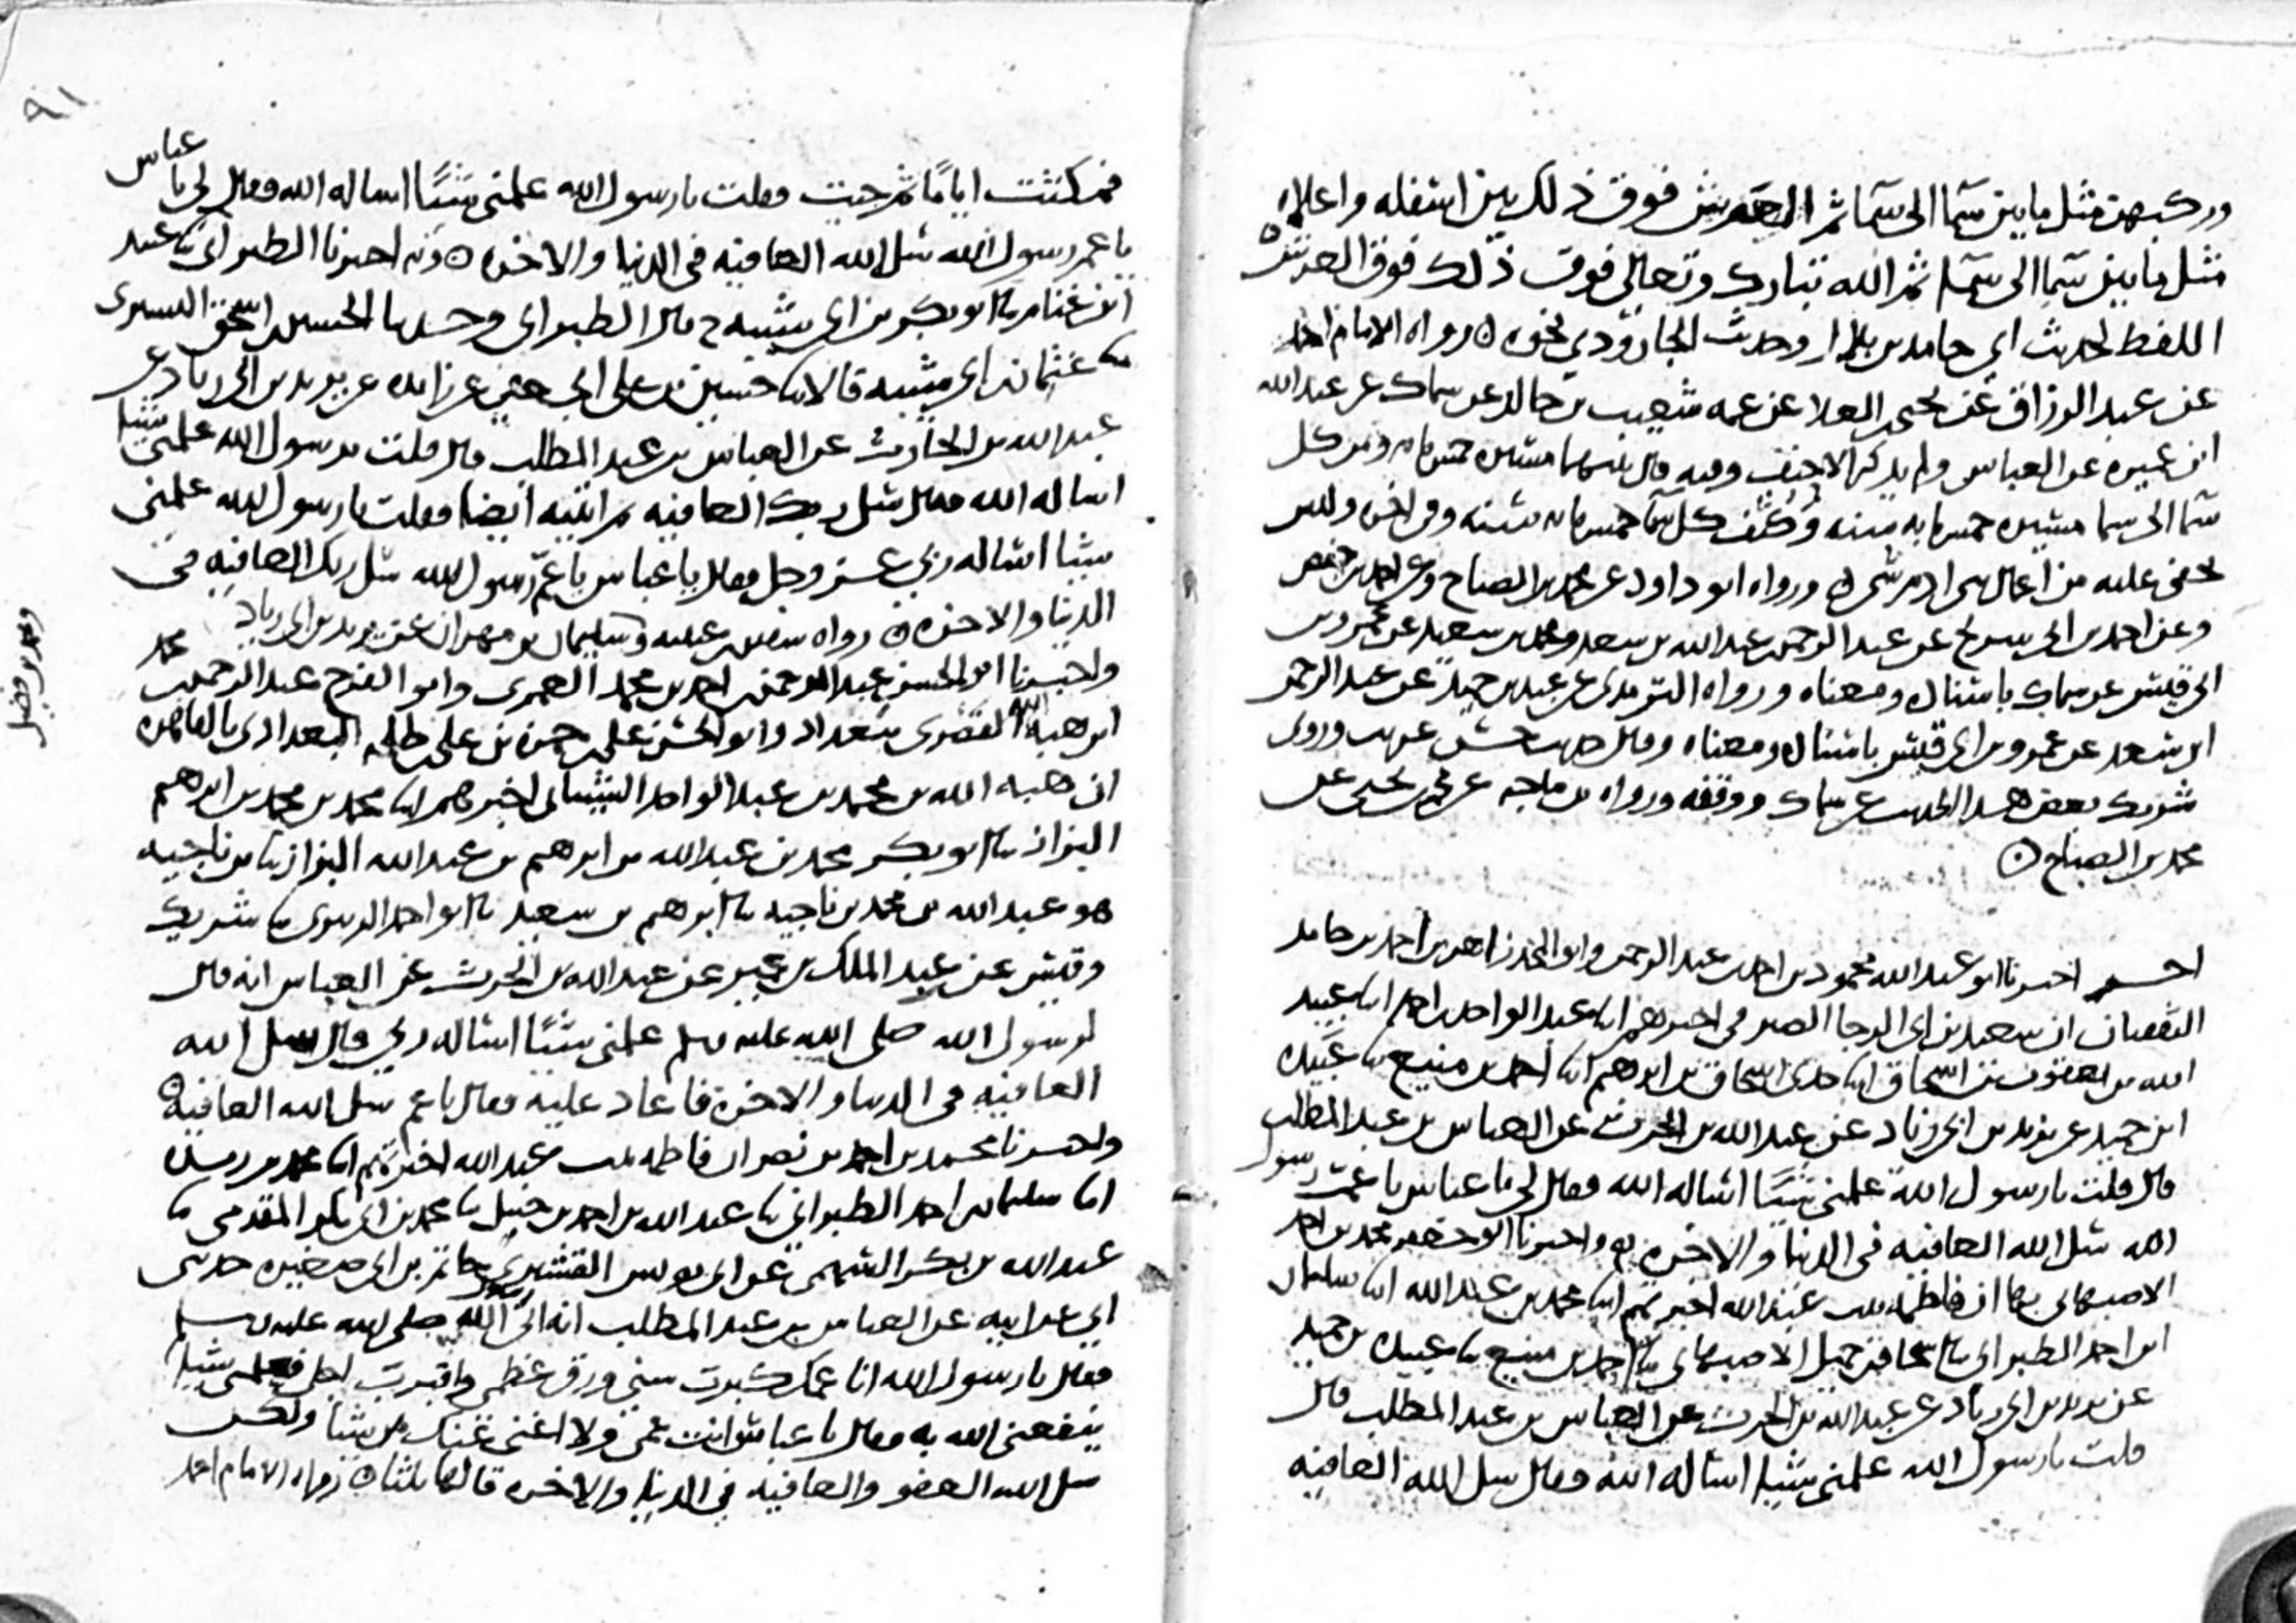 وركبهن مثل ما بين سما الى سما ثم العرش فوق ذلك بين اسفله واعلاه
مثل ما بين سما الى سما ثم الله تبارك وتعالى فوق ذلك فوق العرش
اللفظ لحديث ابي حامد بن بلال وحديث الجارودي نحوه ٥ رواه الامام احمد
عن عبد الرزاق عن يحيى بن العلا عن عمه شعيب بن خالد عن سماك عن عبد الله
ابن عميره عن العباس ولم يذكر الاحنف وفيه قال بينهما مسيره خمس مايه ومن كل
سما الى سما مسيره خمس مايه سنه وكثف كل سما خمس مايه سنه وفي اخره وليس
يخفى عليه من اعمال بني ادم شي ٥ ورواه ابو داود عن محمد بن الصباح وعن احمد بن حفص
وعن احمد بن ابي سريج عن عبد الرحمن بن عبد الله بن سعد ومحمد بن سعيد عن عمرو بن
ابي قيس عن سماك باسناده ومعناه ورواه الترمذي عن عبد بن حميد عن عبد الرحمن
ابن سعد عن عمرو بن ابي قيس باسناده ومعناه وقال حديث حسن غريب وروى
شريك بعض هذا الحديث عن سماك ووقفه ورواه بن ماجه عن محمد بن يحيى عن
محمد بن الصباح ٥
اخبرنا ابو عبد الله محمود بن احمد بن عبد الرحمن وابو المجد زاهر بن احمد بن حامد
الثقفيان ان سعيد بن ابي الرجا الصيرفي اخبرهم ابنا عبد الواحد بن احمد ابنا عبيد
الله بن يعقوب بن اسحاق ابنا جدي اسحاق بن ابرهيم ابنا احمد بن منيع نا عبيده
ابن حميد عن يزيد بن ابي زياد عن عبد الله بن الحرث عن العباس بن عبد المطلب
قال قلت يا رسول الله علمني شيئا اساله الله فقال لي يا عباس يا عم رسول
الله سل الله العافيه في الدنيا والاخره ٥ واخبرنا ابو جعفر محمد بن احمد
الاصبهاني بها ان فاطمه بنت عبد الله اخبرتهم ابنا محمد بن عبد الله ابنا سليمان
ابن احمد الطبراني نا اسحاق بن جميل الاصبهاني نا احمد بن منيع نا عبيده بن حميد
عن يزيد بن ابي زياد عن عبد الله بن الحرث عن العباس بن عبد المطلب قال
قلت يا رسول الله علمني شيئا اساله الله فقال سل الله العافيه
٩١
فمكثت اياما ثم جيت فقلت يا رسول الله علمني شيئا اساله الله فقال لي يا عباس
يا عم رسول الله سل الله العافيه في الدنيا والاخره ٥ وبه اخبرنا الطبراني نا عبيد
ابن غنام نا ابو بكر بن ابي شيبه ح قال الطبراني وحدثنا الحسين بن اسحق التستري
نا عثمان بن ابي شيبه قالا نا حسين بن علي الجعفي عن زايده عن يزيد بن ابي زياد عن
عبد الله بن الحارث عن العباس بن عبد المطلب قال قلت يا رسول الله علمني شيئا
اساله الله فقال سل ربك العافيه ثم اتيته ايضا فقلت يا رسول الله علمني
شيئا اساله ربي عز وجل فقال يا عباس يا عم رسول الله سل ربك العافيه في
الدنيا والاخره ٥ رواه سفين بن عيينه وسليمان بن مهران عن يزيد بن ابي زياد
ومحمد بن فضيل
واخبرنا ابو الحسن عبد الرحمن بن احمد بن محمد العمري وابو الفرج عبد الرحمن بن محمد
ابن هبة الله القصري ببغداد وابو الحسن علي بن حمزه بن علي بن طلحه البغدادي بالقاهره
ان هبه الله بن محمد بن عبد الواحد الشيباني اخبرهم ابنا محمد بن محمد بن ابرهيم
البزاز نا ابو بكر محمد بن عبد الله بن ابرهيم بن عبد الله البزاز نا بن ناجيه
هو عبد الله بن محمد بن ناجيه نا ابرهيم بن سعيد نا ابو احمد الزبيري نا شريك
وقيس عن عبد الملك بن عمير عن عبد الله بن الحرث عن العباس انه قال
لرسول الله صلى الله عليه وسلم علمني شيئا اساله ربي قال سل الله
العافيه في الدنيا والاخره فاعاد عليه فقال يا عم سل الله العافيه ٥
واخبرنا محمد بن احمد بن نصر ان فاطمه بنت عبد الله اخبرتهم ابنا محمد بن ريذه
ابنا سليمان بن احمد الطبراني نا عبد الله بن احمد بن حنبل نا محمد بن ابي بكر المقدمي نا
عبد الله بن بكر السهمي عن ابي يونس القشيري حاتم بن ابي صغيره حدثني
ابي عن ابيه عن العباس بن عبد المطلب انه اتى رسول الله صلى الله عليه وسلم
فقال يا رسول الله انا عمك كبرت سني ورق عظمي واقترب اجلي فعلمني شيئا
ينفعني الله به فقال يا عباس انت عمي ولا اغني عنك من الله شيئا ولكن
سل الله العفو والعافيه في الدنيا والاخره قالها ثلثا ٥ رواه الامام احمد